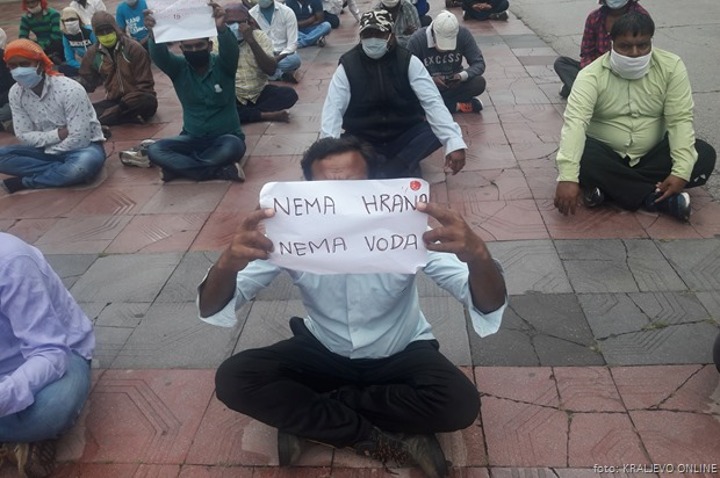 NEMA HRANA
NEMA VODA
EXCESS
foto: KRALJEVO ONLINE